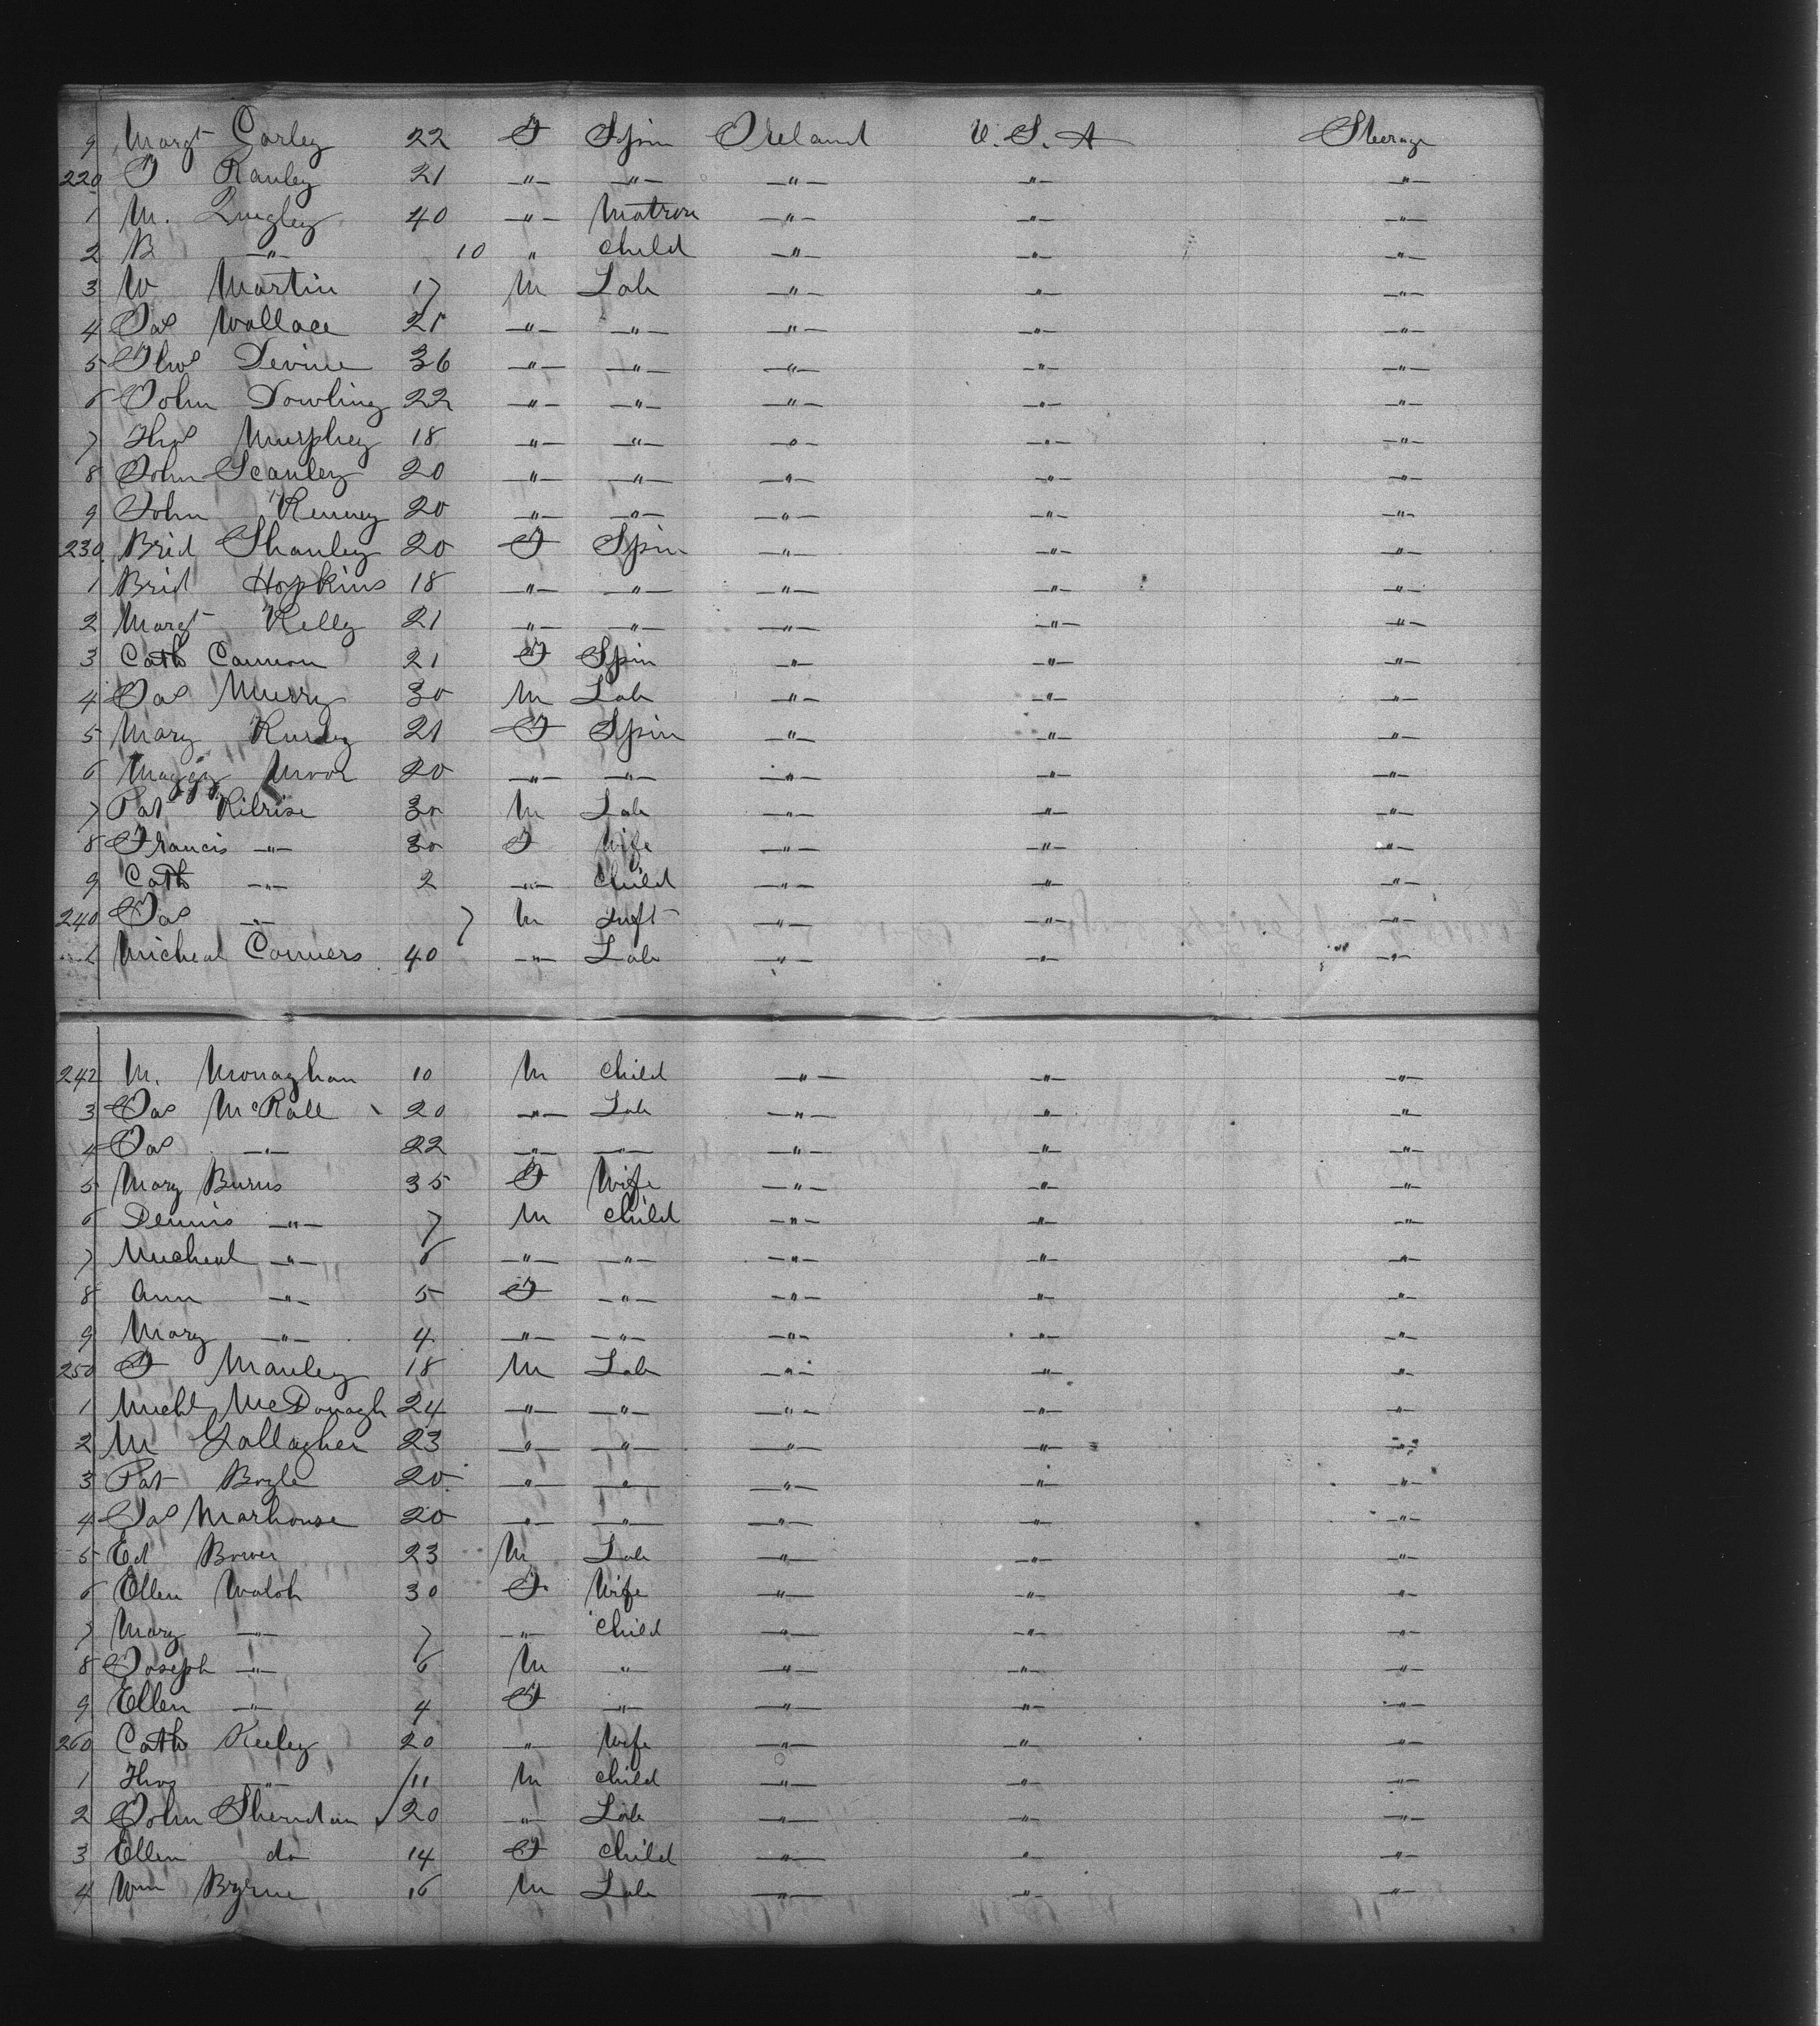 9 Margt Corley 22 F Spin Ireland U.S.A Steerage
220 F Ranley 21 -"- -"- -"- -"- -"-
1 M. Quigley 40 -"- Matron -"- -"- -"-
2 B -"- 10 " child -"- -"- -"-
3 W Martin 17 M Lab -"- -"- -"-
4 Jas Wallace 21 -"- -"- -"- -"- -"-
5 Thos Devine 36 -"- -"- -"- -"- -"-
6 John Dowling 22 -"- -"- -"- -"- -"-
7 Thos Murphey 18 -"- -"- -"- -"- -"-
8 John Scanley 20 -"- -"- -"- -"- -"-
9 John Kenney 20 -"- -"- -"- -"- -"-
230 Brid Shanley 20 F Spin -"- -"- -"-
1 Brid Hopkins 18 -"- -"- -"- -"- -"-
2 Margt Kelly 21 -"- -"- -"- -"- -"-
3 Cath Cannon 21 F Spin -"- -"- -"-
4 Jas Murry 30 M Lab -"- -"- -"-
5 Mary 21 F Spin -"- -"- -"-
6 Maggy Moor 20 -"- -"- -"- -"- -"-
7 Pat Kilrise 30 M Lab -"- -"- -"-
8 Francis -"- 30 F Wife -"- -"- -"-
9 Cath -"- 2 -"- child -"- -"- -"-
240 Jas -"- 7 M Inft -"- -"- -"-
1 Micheal Conners 40 -"- Lab -"- -"- -"-
242 M. Monaghan 10 M child -"- -"- -"-
3 Jas McRall 20 -"- Lab -"- -"- -"-
4 Jas -"- 22 -"- -"- -"- -"- -"-
5 Mary Burns 35 F Wife -"- -"- -"-
6 Dennis -"- 7 M child -"- -"- -"-
7 Micheal -"- 6 -"- -"- -"- -"- -"-
8 Ann -"- 5 F -"- -"- -"- -"-
9 Mary -"- 4 -"- -"- -"- -"- -"-
250 F Manley 18 M Lab -"- -"- -"-
1 Michl McDonagh 24 -"- -"- -"- -"- -"-
2 M Gallagher 23 -"- -"- -"- -"- -"-
3 Pat Boyle 20 -"- -"- -"- -"- -"-
4 Jas Marhouse 20 -"- -"- -"- -"- -"-
5 Ed Bower 23 M Lab -"- -"- -"-
6 Ellen Walsh 30 F Wife -"- -"- -"-
7 Mary -"- 7 -"- child -"- -"- -"-
8 Joseph -"- 6 M " -"- -"- -"-
9 Ellen -"- 4 F -"- -"- -"- -"-
260 Cath Keeley 20 -"- Wife -"- -"- -"-
1 Thos -"- /11 M child -"- -"- -"-
2 John Sheridan 20 -"- Lab -"- -"- -"-
3 Ellen do 14 F child -"- -"- -"-
4 Wm Byrne 16 M Lab -"- -"- -"-